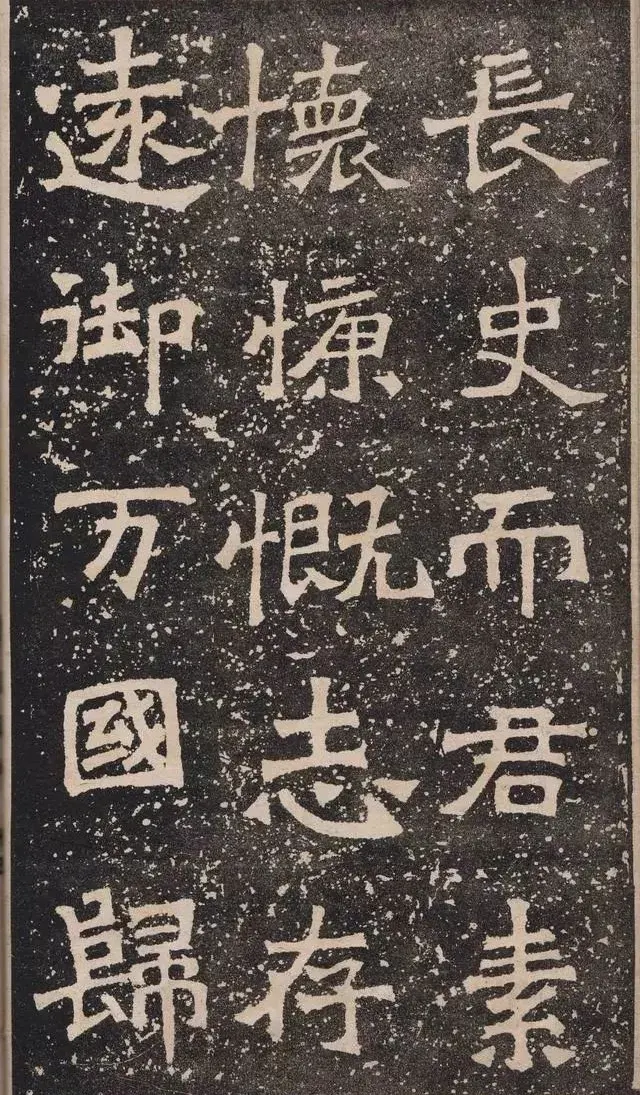 長史而君素
懷慷慨志存
遠御万國歸